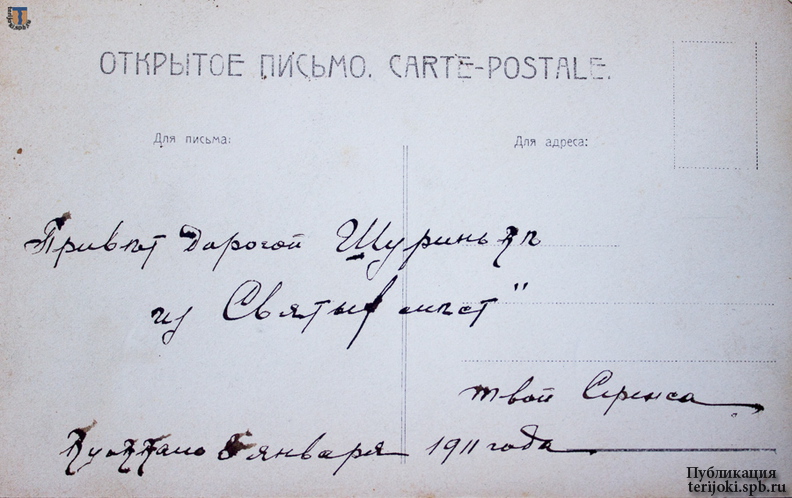 ОТКРЫТОЕ ПИСЬМО. CARTE-POSTALE.
Для письма:
Для адреса:
Привѣт дорогой Шуринькѣ
из Святых мѣст"
твой Сережа
Куоккала 8 января 1911 года
Публикация
terijoki.spb.ru